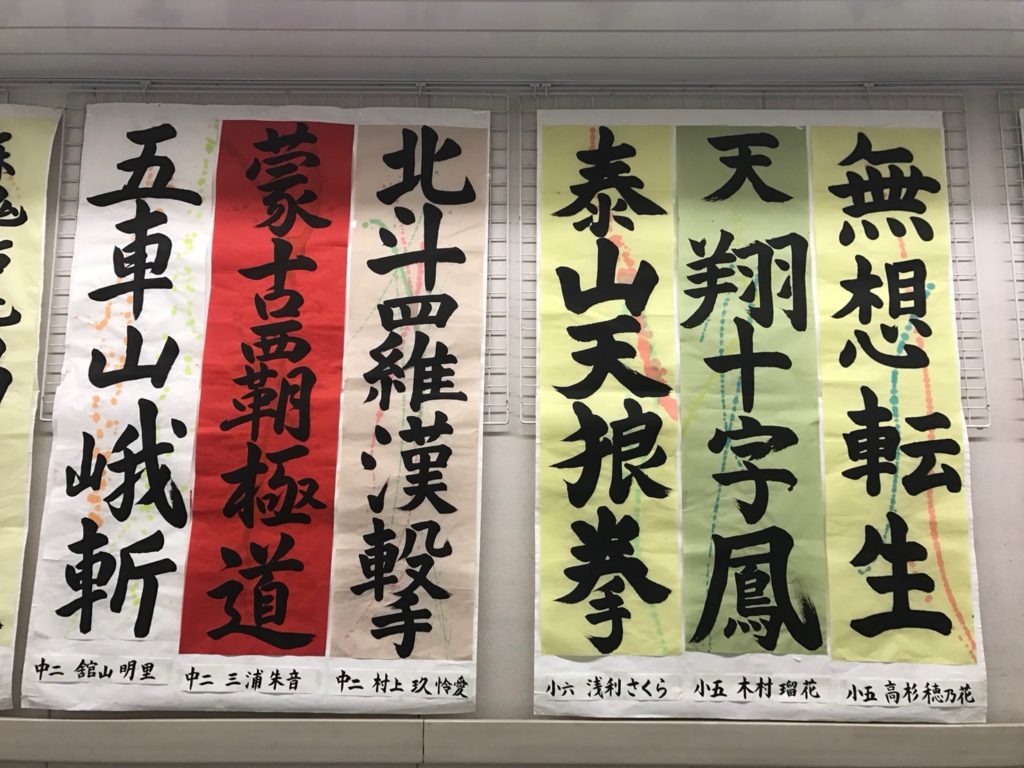 無想転生
小五 高杉穂乃花
天翔十字鳳
小五 木村瑠花
泰山天狼拳
小六 浅利さくら
北斗四羅漢撃
中二 村上玖怜愛
蒙古覇極道
中二 三浦朱音
五車山峨斬
中二 舘山明里